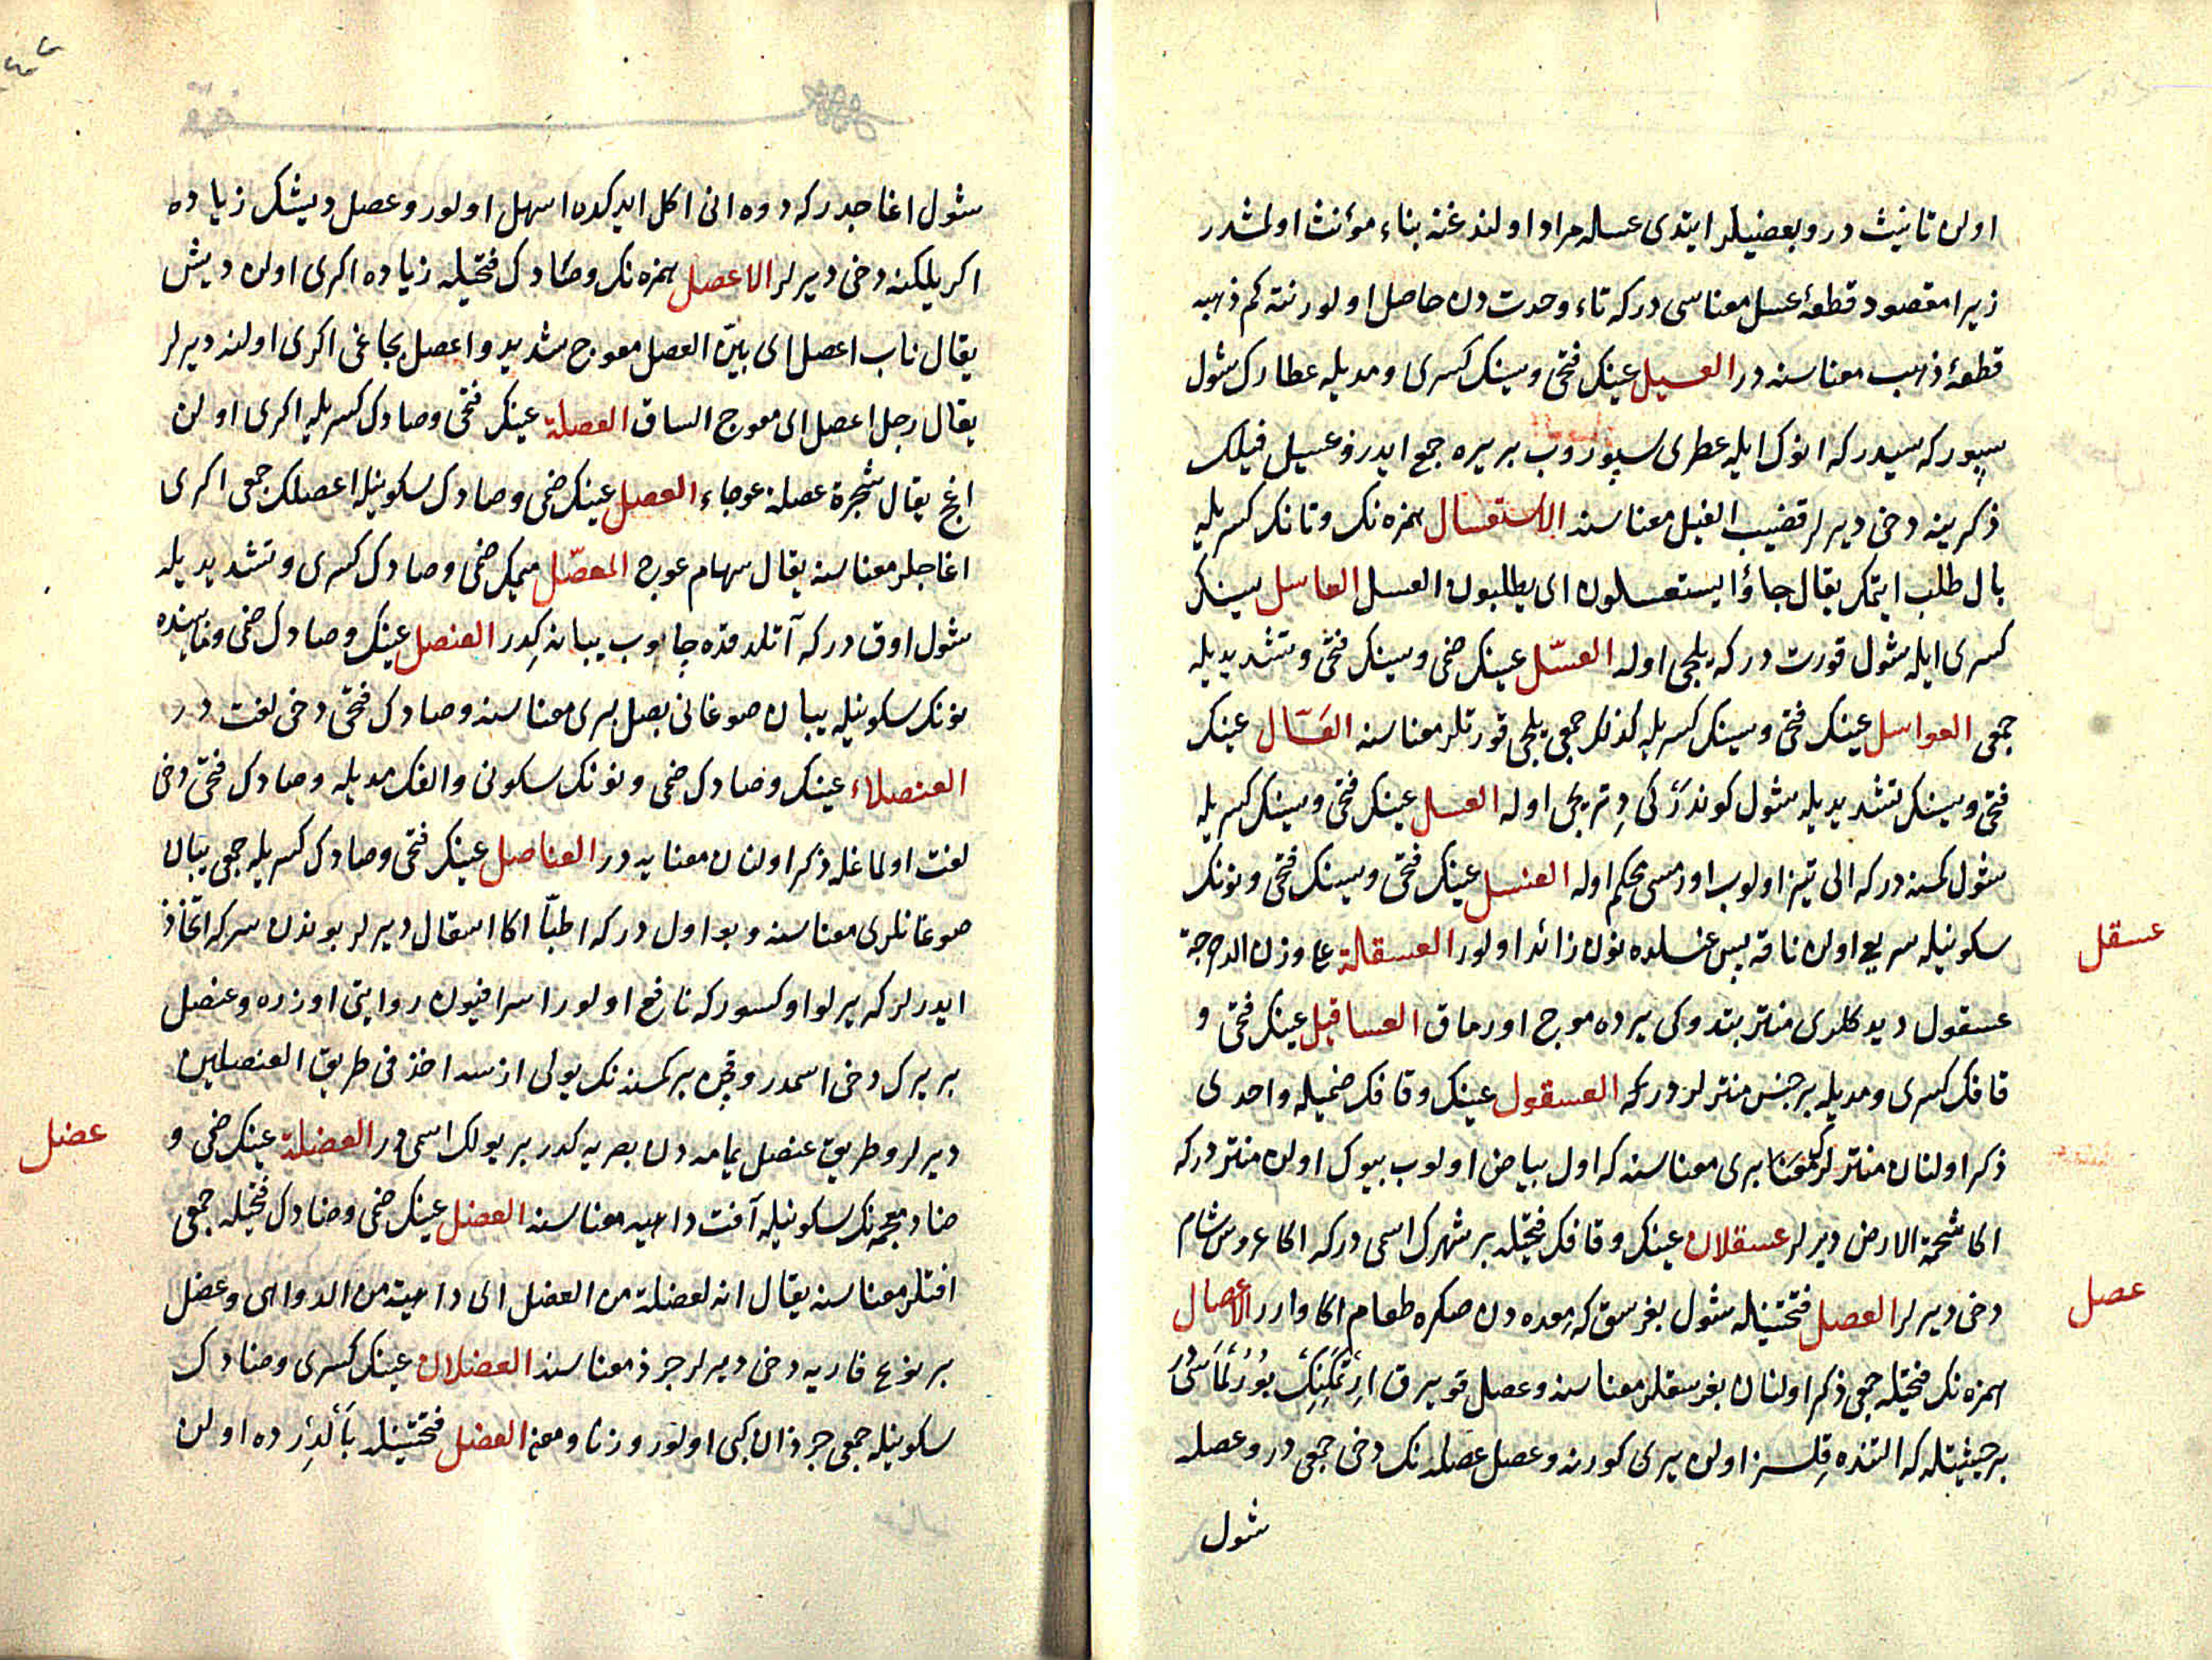 اولن تانيث در و بعضيلر ايتدی عسله مراد اولندغنه بناء مؤنث اولمشدر
زيرا مقصود قطعۀ عسل معناسی در كه تاء وحدت دن حاصل اولور نته كم ذهبه
قطعۀ ذهب معناسنه در العسيل عينك فتحی و سينك كسری و مديله عطارك شول
سپوركه سيدر كه انوك ايله عطری سپوروب بر يره جمع ايدر و عسيل فيلك
ذكرينه دخی ديرلر قضيب الفيل معناسنه الاستعسال همزه نك و تانك كسريله
بال طلب ايتمك يقال جاؤا يستعسلون ای يطلبون العسل العاسل سينك
كسری ايله شول قورت در كه يلجی اوله العسّل عينك ضمی و سينك فتحی و تشديديله
جمعی العواسل عينك فتحی و سينك كسريله كذلك جمعی يلجی قورتلر معناسنه العسّال عينك
فتحی و سينك تشديديله شول كوندركی دتريجی اوله العسل عينك فتحی و سينك كسريله
شول كمسنه در كه الی تيز اولوب اورمسی محكم اوله العنسل عينك فتحی و سينك فتحی و نونك
سكونيله سريع اولن ناقه پس عنسلده نون زائد اولور العسقالة علی وزن الدحرجة
عسقل
عسقول ديدكلری منتر بتدوكی يرده موج اورماق العساقيل عينك فتحی و
قافك كسری و مديله بر جنس منترلر در كه العسقول عينك و قافك ضميله واحدی
ذكر اولنان منترلرك معنا بری معناسنه كه اول بياض اولوب بيوك اولن منتر در كه
اكا شحمة الارض ديرلر عسقلان عينك و قافك فتحيله بر شهرك اسمی در كه اكا عروس شام
دخی ديرلر العصل فتحتينله شول بغرسق كه معده دن صكره طعام اكا وارر الاعصال
عصل
همزه نك فتحيله جمعی ذكر اولنان بغرسقلر معناسنه و عصل قويرق ارتمكينك بورلماسی در
بر حيثيتله كه التنده قلسز اولن يری كورنه و عصل عصله نك دخی جمعی در و عصله
شول
شول اغاجدر كه دوه انی اكل ايدكده اسهل اولور و عصل ديشك زياده
اكريلكنه دخی ديرلر الاعصل همزه نك و صادك فتحيله زياده اكری اولن ديش
يقال ناب اعصل ای بيّن العصل معوج شديد و اعصل بجاغی اكری اولنه ديرلر
يقال رجل اعصل ای معوج الساق العصلة عينك فتحی و صادك كسريله اكری اولن
اغج يقال شجرة عصلة عوجاء العصل عينك ضمی و صادك سكونيله اعصلك جمعی اكری
اغاجلر معناسنه يقال سهام عوج المعصّل ميمك ضمی و صادك كسری و تشديديله
شول اوق در كه آتلدقده چاروب يبانه كدر العنصل عينك و صادك ضمی و مابينده
نونك سكونيله يبان صوغانی بصل بری معناسنه و صادك فتحی دخی لغت در
العنصلاء عينك و صادك ضمی و نونك سكونی و الفك مديله و صادك فتحی دخی
لغت اولماغله ذكر اولنان معنايه در العناصل عينك فتحی و صادك كسريله جمعی يبان
صوغانلری معناسنه و بو اول در كه اطبّا اكا اسقال ديرلر بوندن سركه اتخاذ
ايدرلر كه يرلو اوكسوركه نافع اولور اسرافيون روايتی اوزره و عنصل
بر يرك دخی اسمدر و قچن بر كمسنه نك يولی ازسه اخذ فی طريق العنصلين
ديرلر و طريق عنصل يمامه دن بصريه كدر بر يولك اسمی در العضلة عينك ضمی و
عضل
ضاد معجمه نك سكونيله آفت داهيه معناسنه العضل عينك ضمی و ضادك فتحيله جمعی
افتلر معناسنه يقال انه لعضلة من العضل ای داهية من الدواهی و عضل
بر نوع فاريه دخی ديرلر جرذ معناسنه العضلان عينك كسری و ضادك
سكونيله جمعی جرذان كبی اولور وزنا و معنی العضل فتحتينله بالدرده اولن